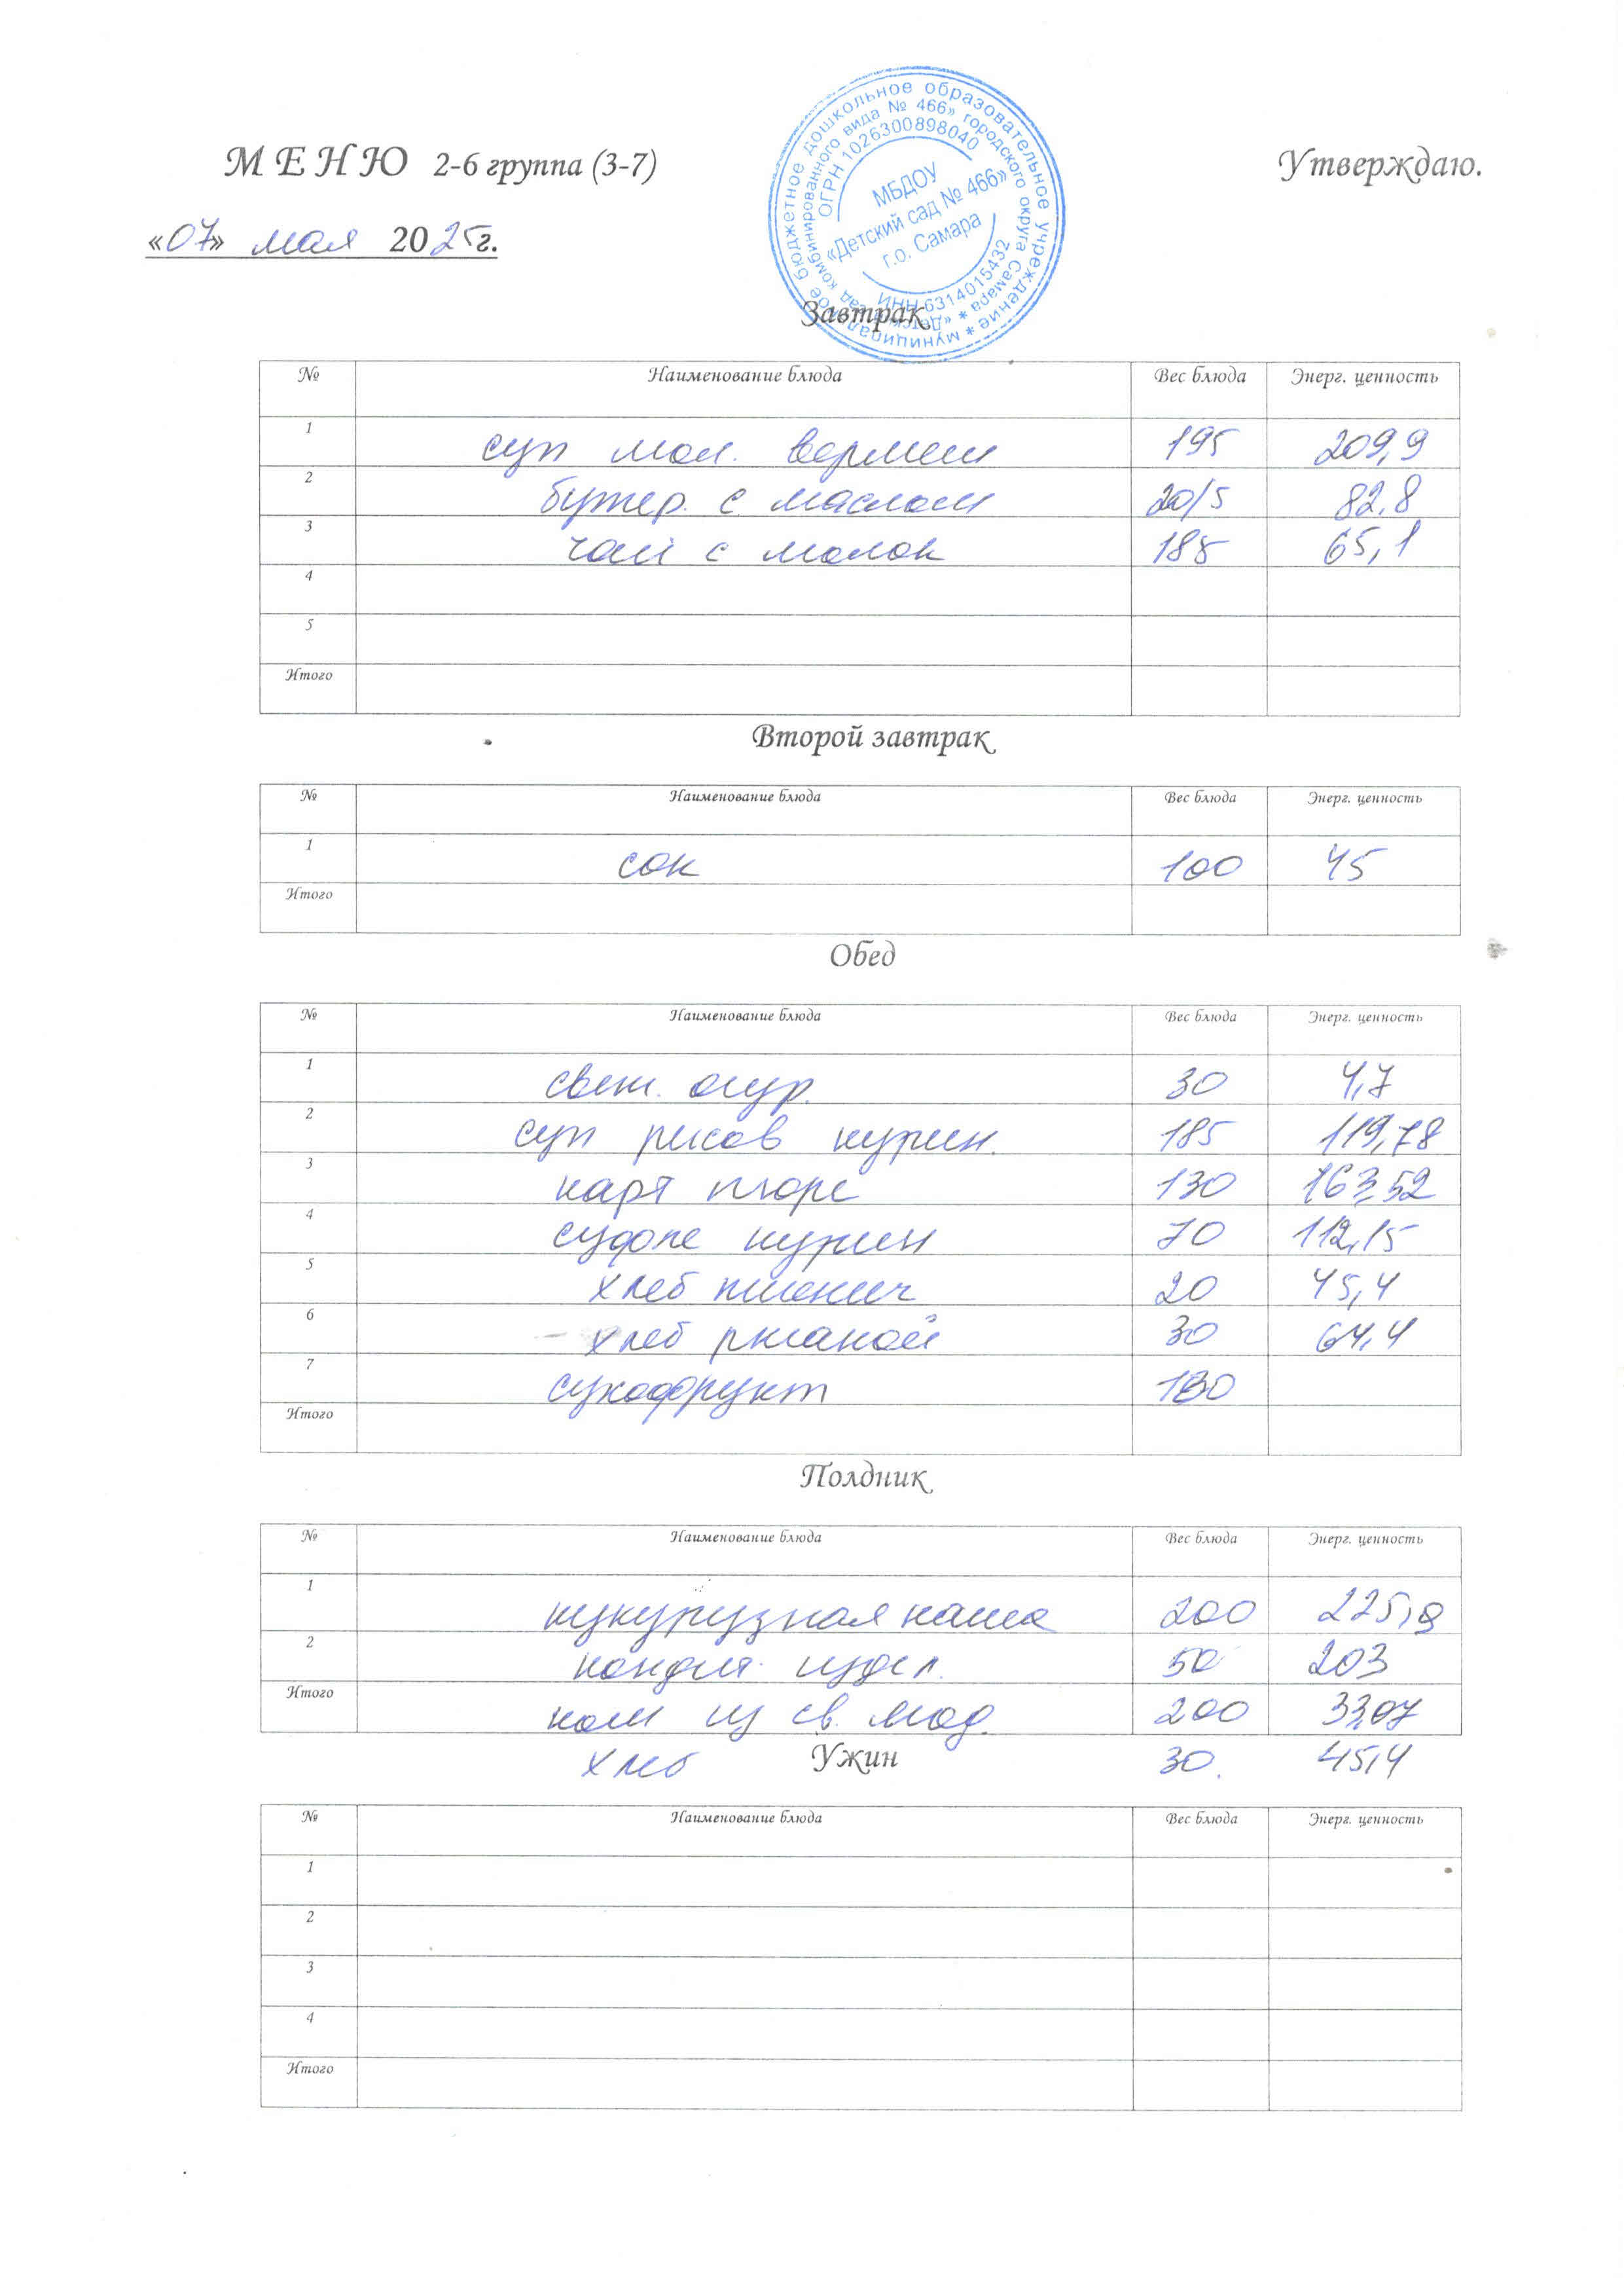 М Е Н Ю 2-6 группа (3-7) Утверждаю.
«07» мая 2025г.
муниципальное бюджетное дошкольное образовательное учреждение *
«Детский сад комбинированного вида № 466» городского округа Самара *
ОГРН 1026300898040
МБДОУ
«Детский сад № 466»
г.о. Самара
ИНН 6314015432
Завтрак
№ Наименование блюда Вес блюда Энерг. ценность
1 суп мол. вермеш 195 209,9
2 бутер. с маслом 20/5 82,8
3 чай с молок 188 65,1
4
5
Итого
Второй завтрак
№ Наименование блюда Вес блюда Энерг. ценность
1 сок 100 45
Итого
Обед
№ Наименование блюда Вес блюда Энерг. ценность
1 свеж. огур. 30 4,7
2 суп рисов курин. 185 119,78
3 карт пюре 130 163,52
4 суфле курин 70 112,15
5 хлеб пшенич 20 45,4
6 хлеб ржаной 30 64,4
7 сухофрукт 180
Итого
Полдник
№ Наименование блюда Вес блюда Энерг. ценность
1 кукурузная каша 200 225,9
2 кондит. издел. 50 203
Итого ком из св. мод. 200 33,07
хлеб Ужин 30. 45,4
№ Наименование блюда Вес блюда Энерг. ценность
1
2
3
4
Итого